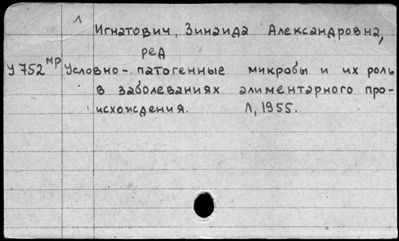 1
Игнатович, Зинаида Александровна,
ред
У752мр Условно-патогенные микробы и их роль
в заболеваниях алиментарного про-
исхождения. Л, 1955.